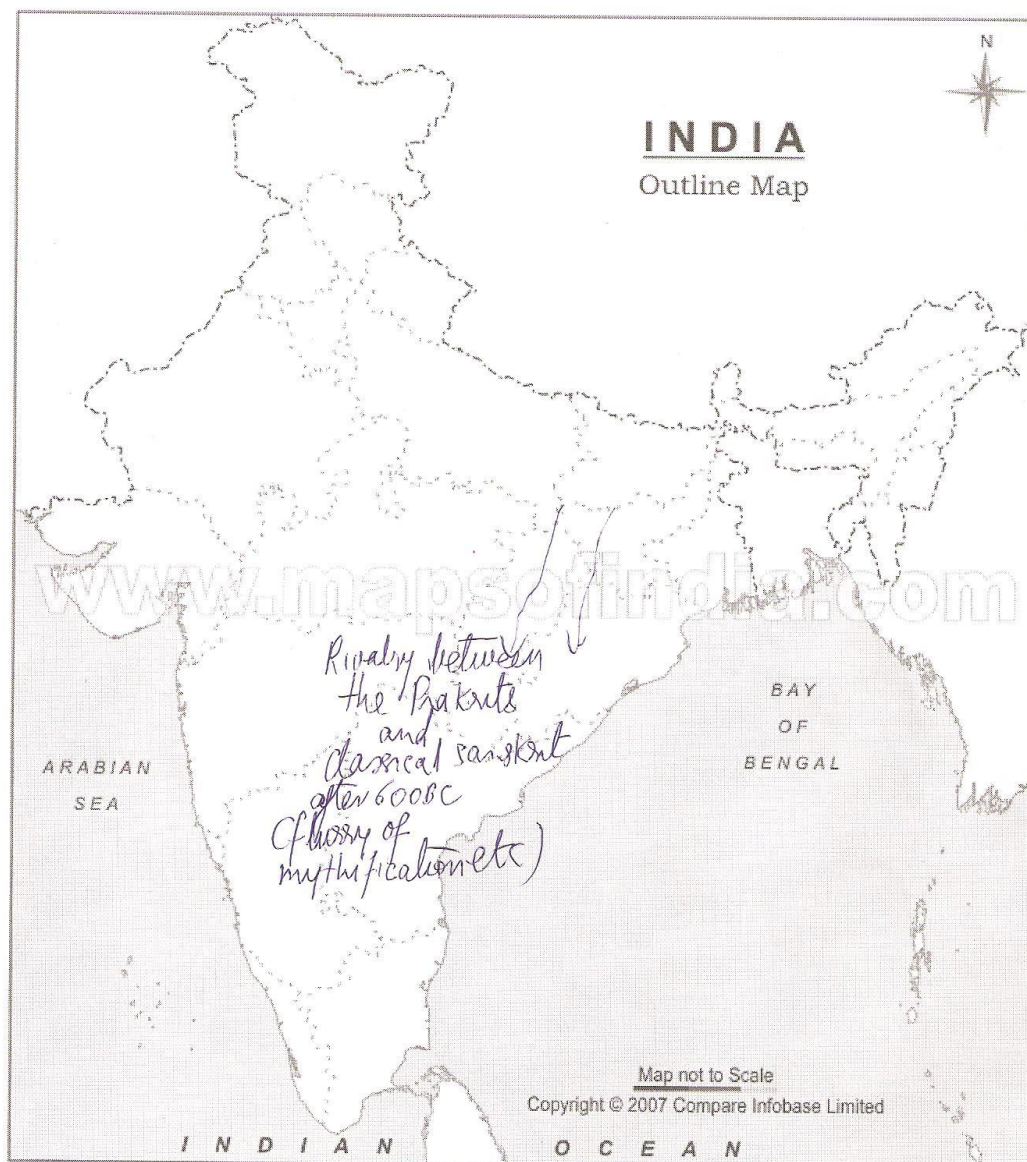 N
INDIA
Outline Map
www.mapsofindia.com
Rivalry between
the Prakrits
and
classical sanskrit
after 600BC
(flurry of
mythification etc)
ARABIAN
SEA
BAY
OF
BENGAL
Map not to Scale
Copyright © 2007 Compare Infobase Limited
INDIAN OCEAN